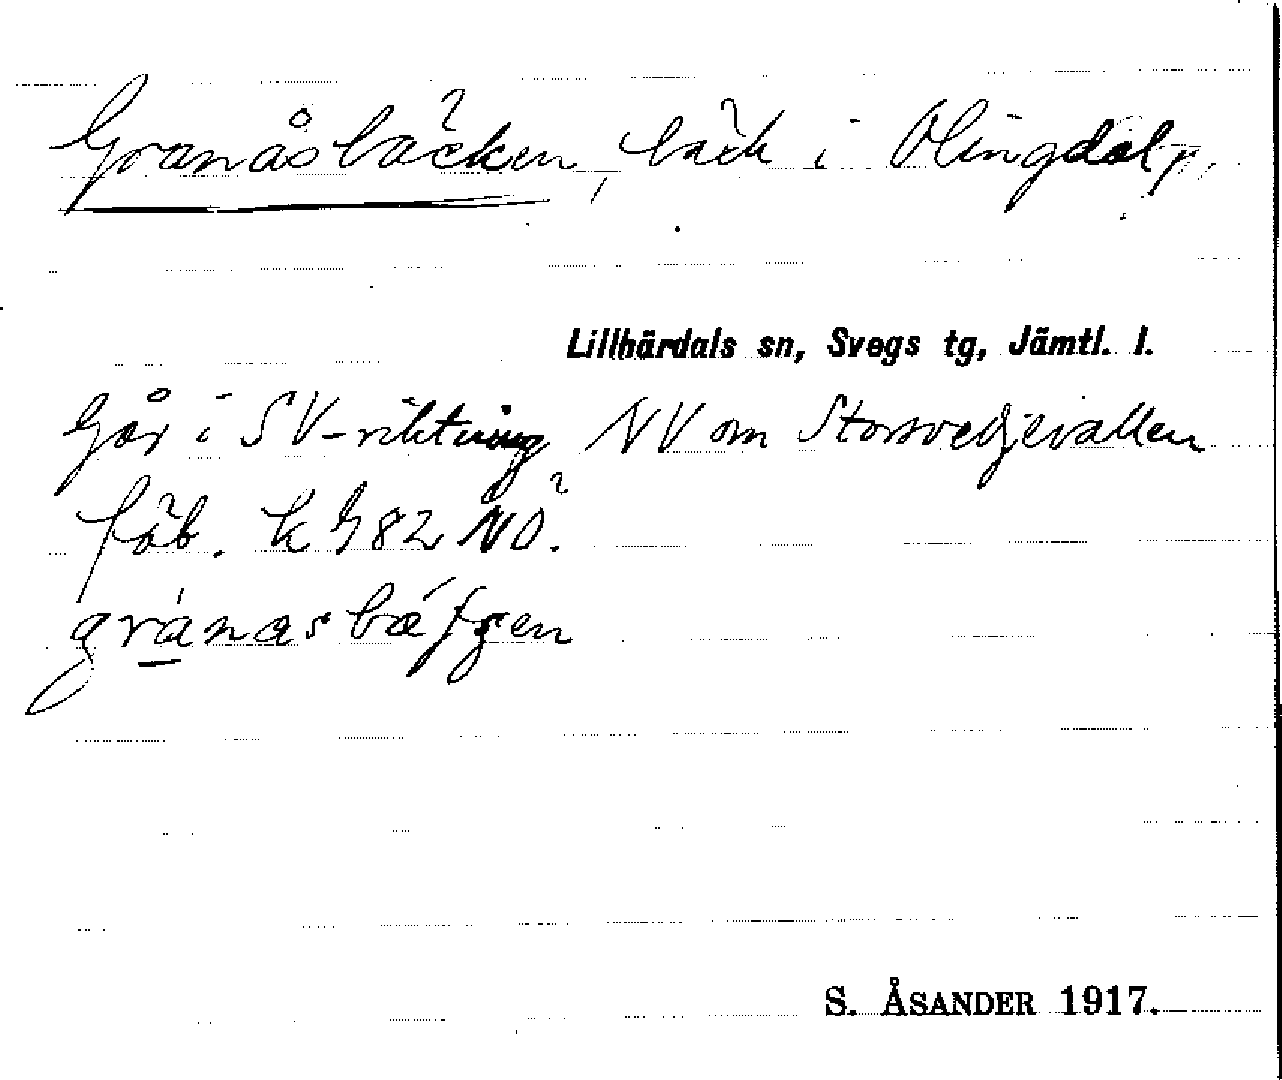 Granåsbäcken, bäck i Olingdal,
Lillhärdals sn, Svegs tg, Jämtl. l.
Går i SV-riktning NV om Storsveljevallen
fäb. k G82 NÖ.
gránasbæ´fsen
S. ÅSANDER 1917.